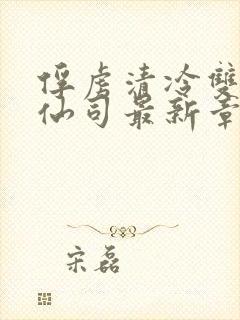 俘虏清冷雙
仙司最新章
宋磊